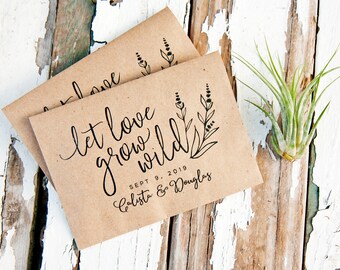 let love
grow
wild
SEPT 9, 2019
Calista & Douglas
let love